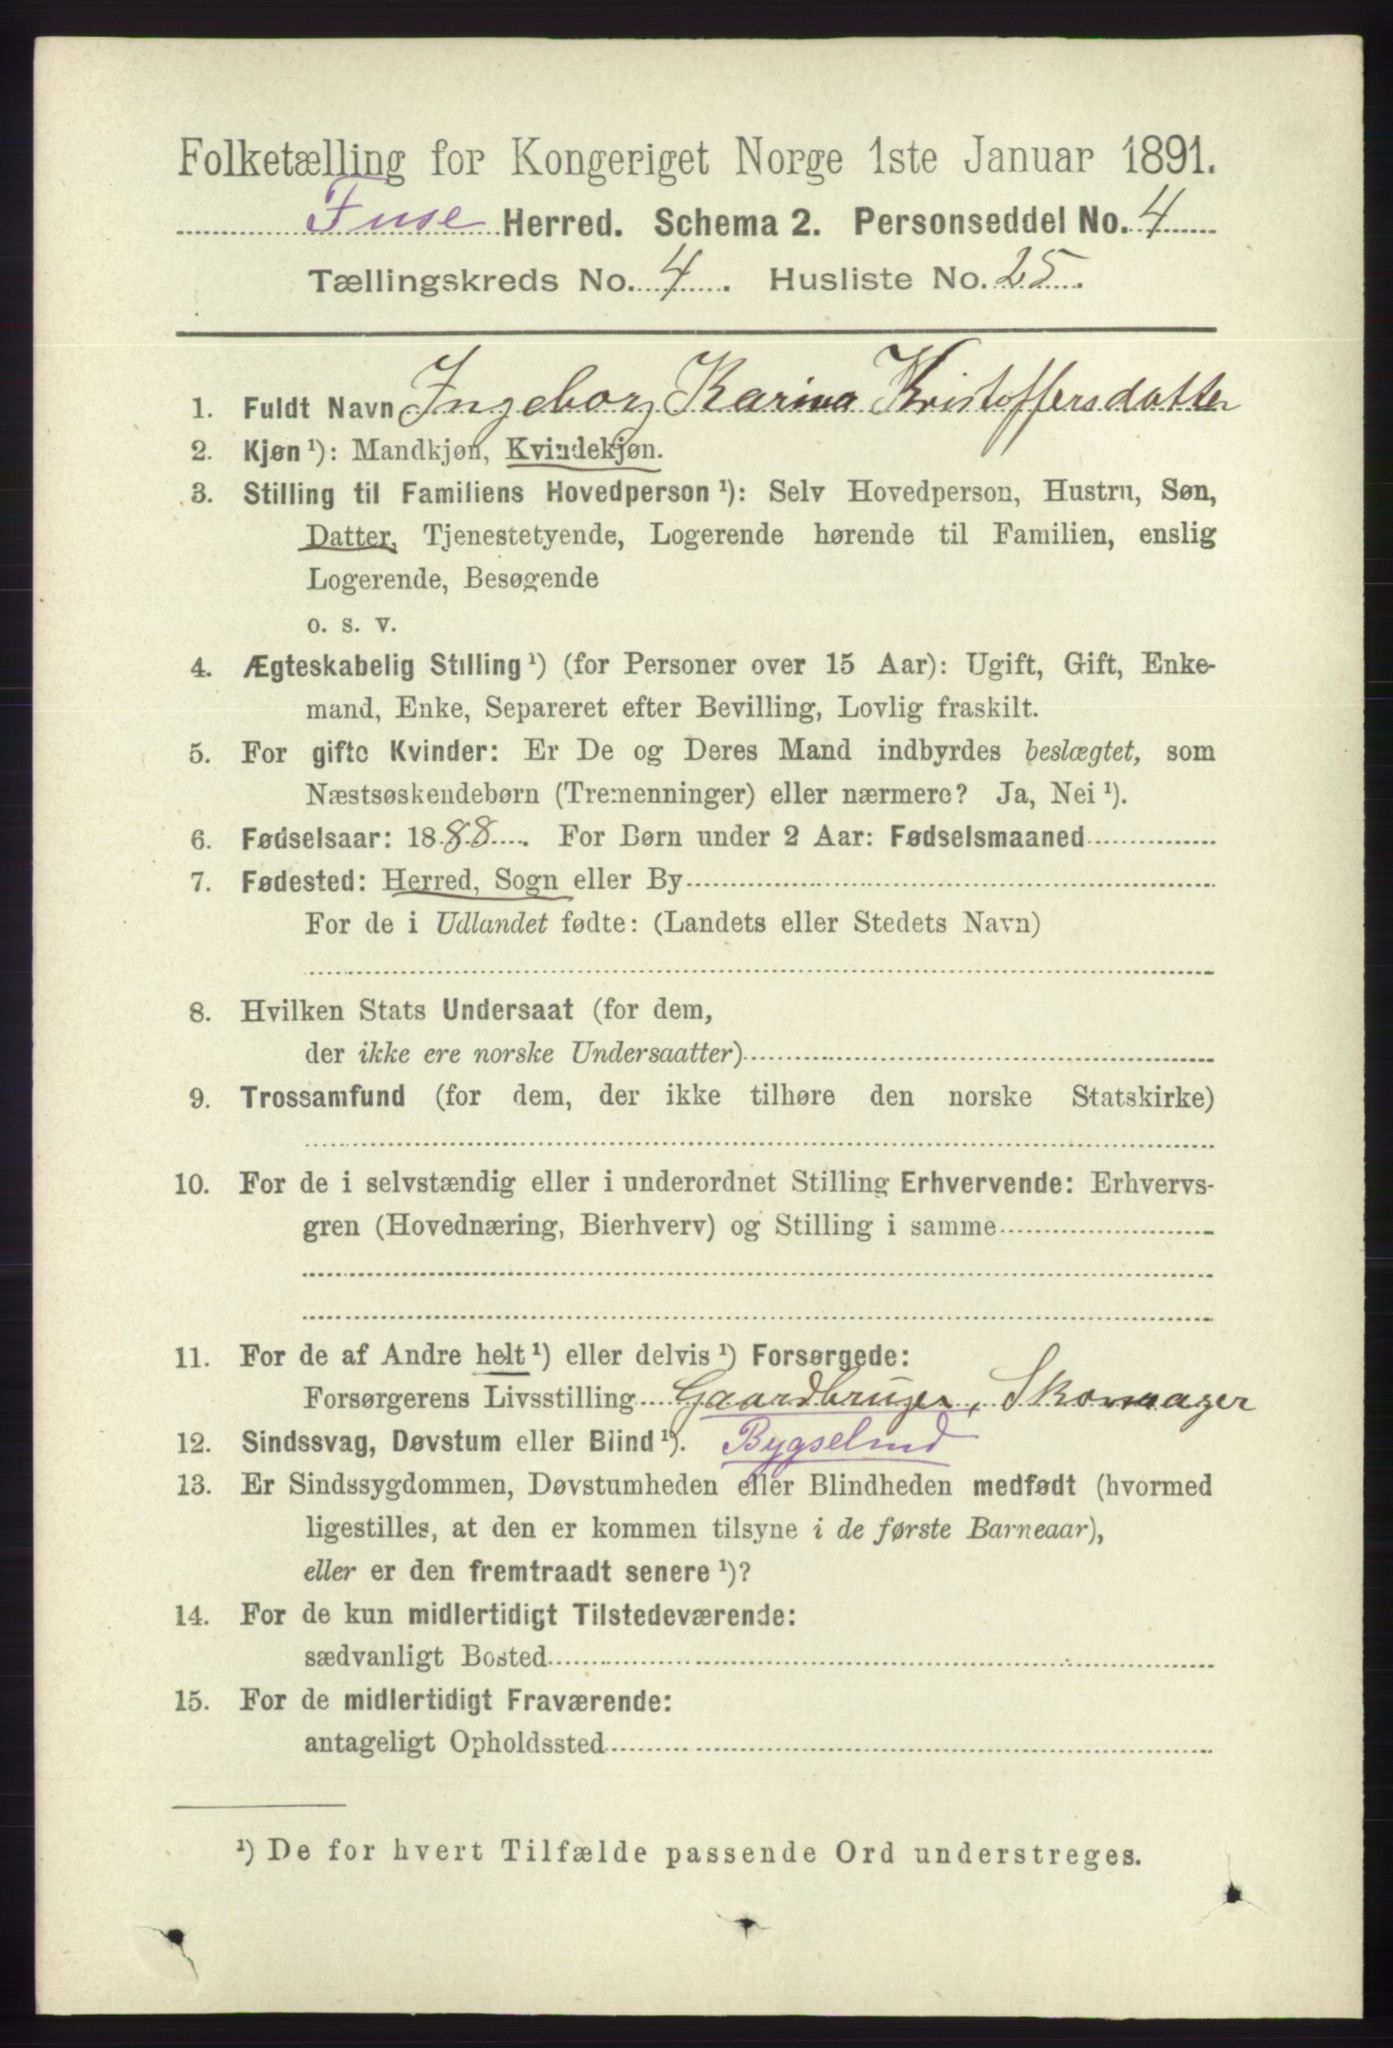 Folketælling for Kongeriget Norge 1ste Januar 1891.
Fuse Herred. Schema 2. Personseddel No. 4
Tællingskreds No. 4. Husliste No. 25.
1. Fuldt Navn Ingeborg Karina Kristoffersdatter
2. Kjøn¹): Mandkjøn, Kvindekjøn.
3. Stilling til Familiens Hovedperson¹): Selv Hovedperson, Hustru, Søn,
Datter, Tjenestetyende, Logerende hørende til Familien, enslig
Logerende, Besøgende
o. s. v.
4. Ægteskabelig Stilling¹) (for Personer over 15 Aar): Ugift, Gift, Enke-
mand, Enke, Separeret efter Bevilling, Lovlig fraskilt.
5. For gifte Kvinder: Er De og Deres Mand indbyrdes beslægtet, som
Næstsøskendebørn (Tremenninger) eller nærmere? Ja, Nei¹).
6. Fødselsaar: 1888. For Børn under 2 Aar: Fødselsmaaned
7. Fødested: Herred, Sogn eller By
For de i Udlandet fødte: (Landets eller Stedets Navn)
8. Hvilken Stats Undersaat (for dem,
der ikke ere norske Undersaatter)
9. Trossamfund (for dem, der ikke tilhøre den norske Statskirke)
10. For de i selvstændig eller i underordnet Stilling Erhvervende: Erhvervs-
gren (Hovednæring, Bierhverv) og Stilling i samme
11. For de af Andre helt¹) eller delvis¹) Forsørgede:
Forsørgerens Livsstilling Gaardbruger, Skomager
12. Sindssvag, Døvstum eller Blind¹). Bygselmd
13. Er Sindssygdommen, Døvstumheden eller Blindheden medfødt (hvormed
ligestilles, at den er kommen tilsyne i de første Barneaar),
eller er den fremtraadt senere¹)?
14. For de kun midlertidigt Tilstedeværende:
sædvanligt Bosted
15. For de midlertidigt Fraværende:
antageligt Opholdssted
¹) De for hvert Tilfælde passende Ord understreges.